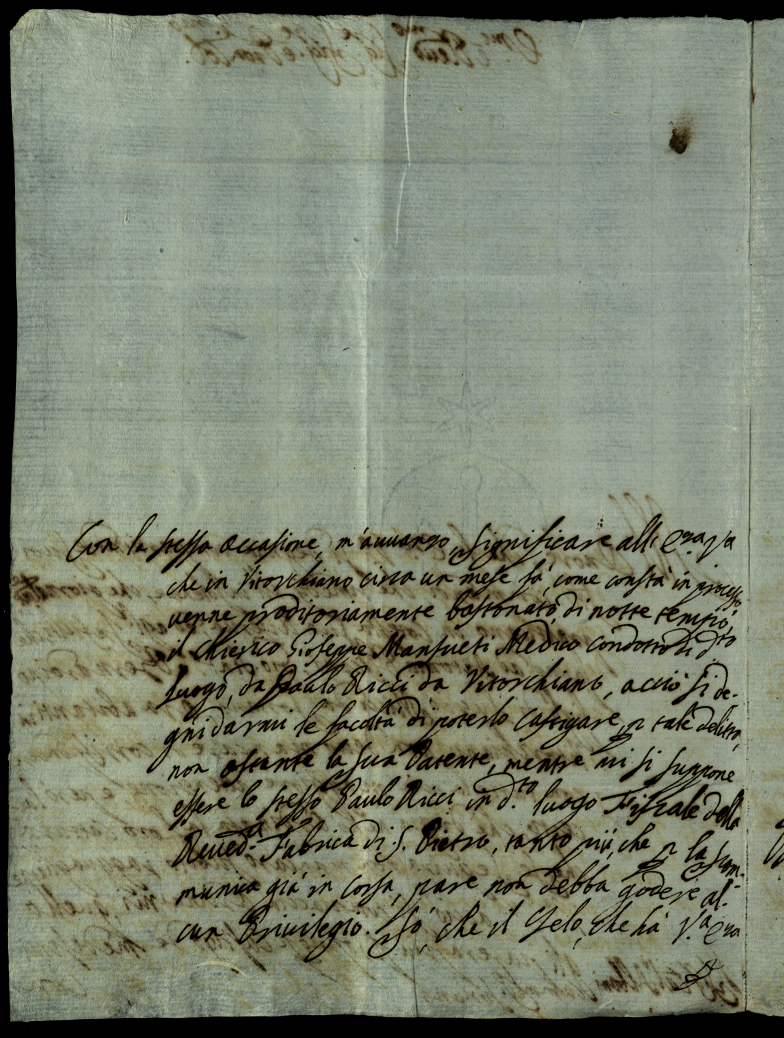 Con la stessa occasione, m'auuanzo significare all' E.za V.ra
che in Vitorchiano circa un mese fà, come constà in processo
uenne proditoriamente bastonato, di notte tempo,
il Chierico Gioseppe Mansueti Medico condotto di d.to
luogo, da Paulo Ricci da Vitorchiano, acciò si de-
gni darmi le facoltà di poterlo castigare, p tale delitto,
non ostante la sua Patente, mentre mi si suppone
essere lo stesso Paulo Ricci in d.to luogo Fiscale della
Reued.a Fabrica di S. Pietro, tanto più, che p la scom-
munica già in corsa, pare non debba godere al-
cun Priuilegio. Sò, che il Zelo, che hà V.a E.za